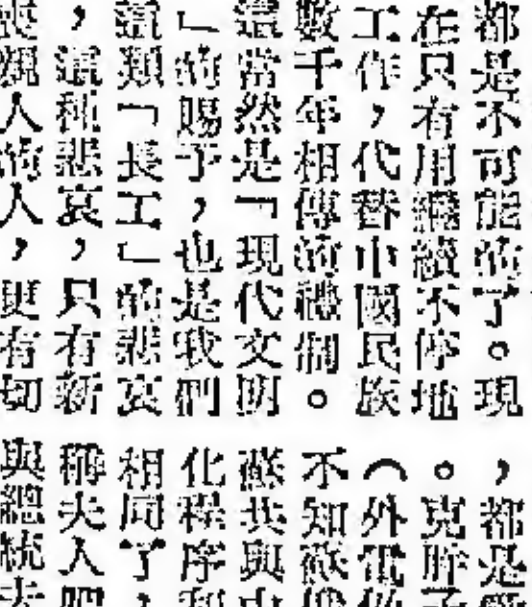 都是不可能的了。現
在只有用繼續不停地
工作,代替中國民族
數千年相傳的禮制。
這常然是「現代文明
」的賜予,也是我們
這類「長工」的悲哀
,這種悲哀,只有新
喪親人的人,更有切
,都是
。克
(外電
不知蘇俄
蘇共與中
化程序和
相同了,
稱夫人
與總統夫